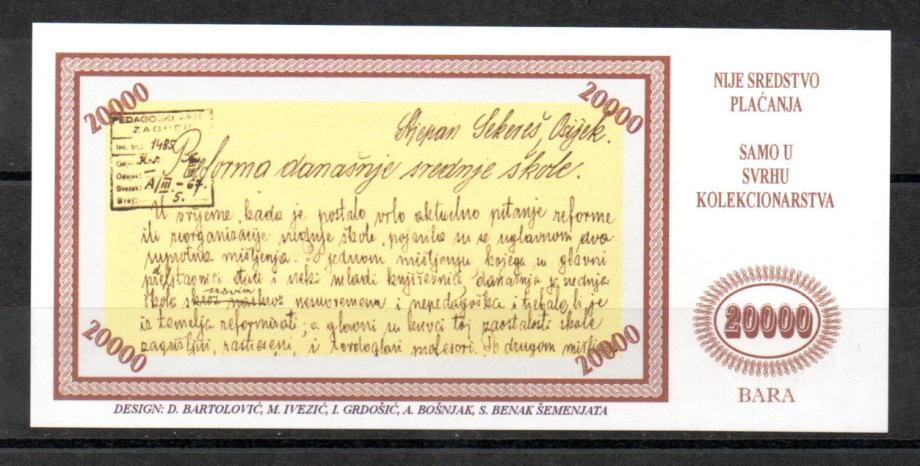 20000
20000
PEDAGOŠKI ARHIV
ZAGREB
Inv. br.: 1485
Odjel:
Odsjek:
Svezak: A/III. - 67.
Broj: 5.
Stjepan Sekereš, Osijek.
Reforma današnje srednje škole.
U vrijeme, kada je postalo vrlo aktuelno pitanje reforme
ili reorganizacije srednje škole, pojavila su se uglavnom dva
suprotna mišljenja. Po jednom mišljenju kojega su glavni
predstavnici đaci i neki mladi književnici, današnja je srednja
škola sasvim nesuvremena i nepedagoška i trebalo bi je
iz temelja reformirati; a glavni su krivci toj zaostalosti škole
zagrižljivi, rastreseni, i tvrdoglavi profesori. Po drugom mišlje
20000
20000
DESIGN: D. BARTOLOVIĆ, M. IVEZIĆ, I. GRDOŠIĆ, A. BOŠNJAK, S. BENAK ŠEMENJATA
NIJE SREDSTVO
PLAĆANJA
SAMO U
SVRHU
KOLEKCIONARSTVA
20000
BARA